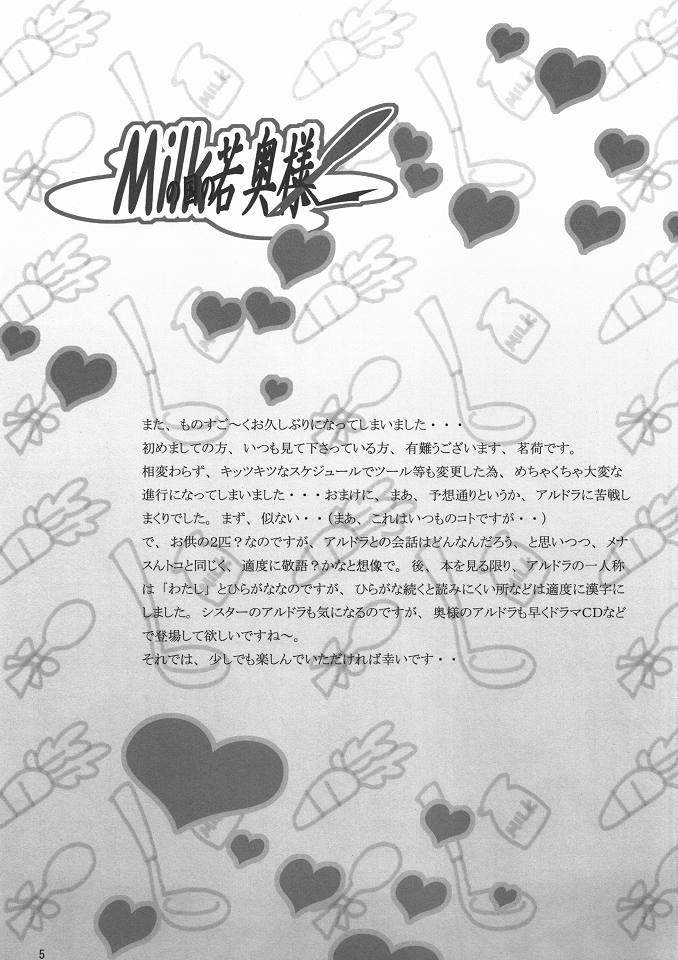 Milkの国の若奥様
MILK
また、ものすご〜くお久しぶりになってしまいました・・・
初めましての方、いつも見て下さっている方、有難うございます、茗荷です。
相変わらず、キッツキツなスケジュールでツール等も変更した為、めちゃくちゃ大変な
進行になってしまいました・・・おまけに、まあ、予想通りというか、アルドラに苦戦し
まくりでした。まず、似ない・・（まあ、これはいつものコトですが・・）
で、お供の2匹？なのですが、アルドラとの会話はどんなんだろう、と思いつつ、メナ
スんトコと同じく、適度に敬語？かなと想像で。後、本を見る限り、アルドラの一人称
は「わたし」とひらがななのですが、ひらがな続くと読みにくい所などは適度に漢字に
しました。シスターのアルドラも気になるのですが、奥様のアルドラも早くドラマCDなど
で登場して欲しいですね〜。
それでは、少しでも楽しんでいただければ幸いです・・
MILK
MILK
MILK
MILK
5